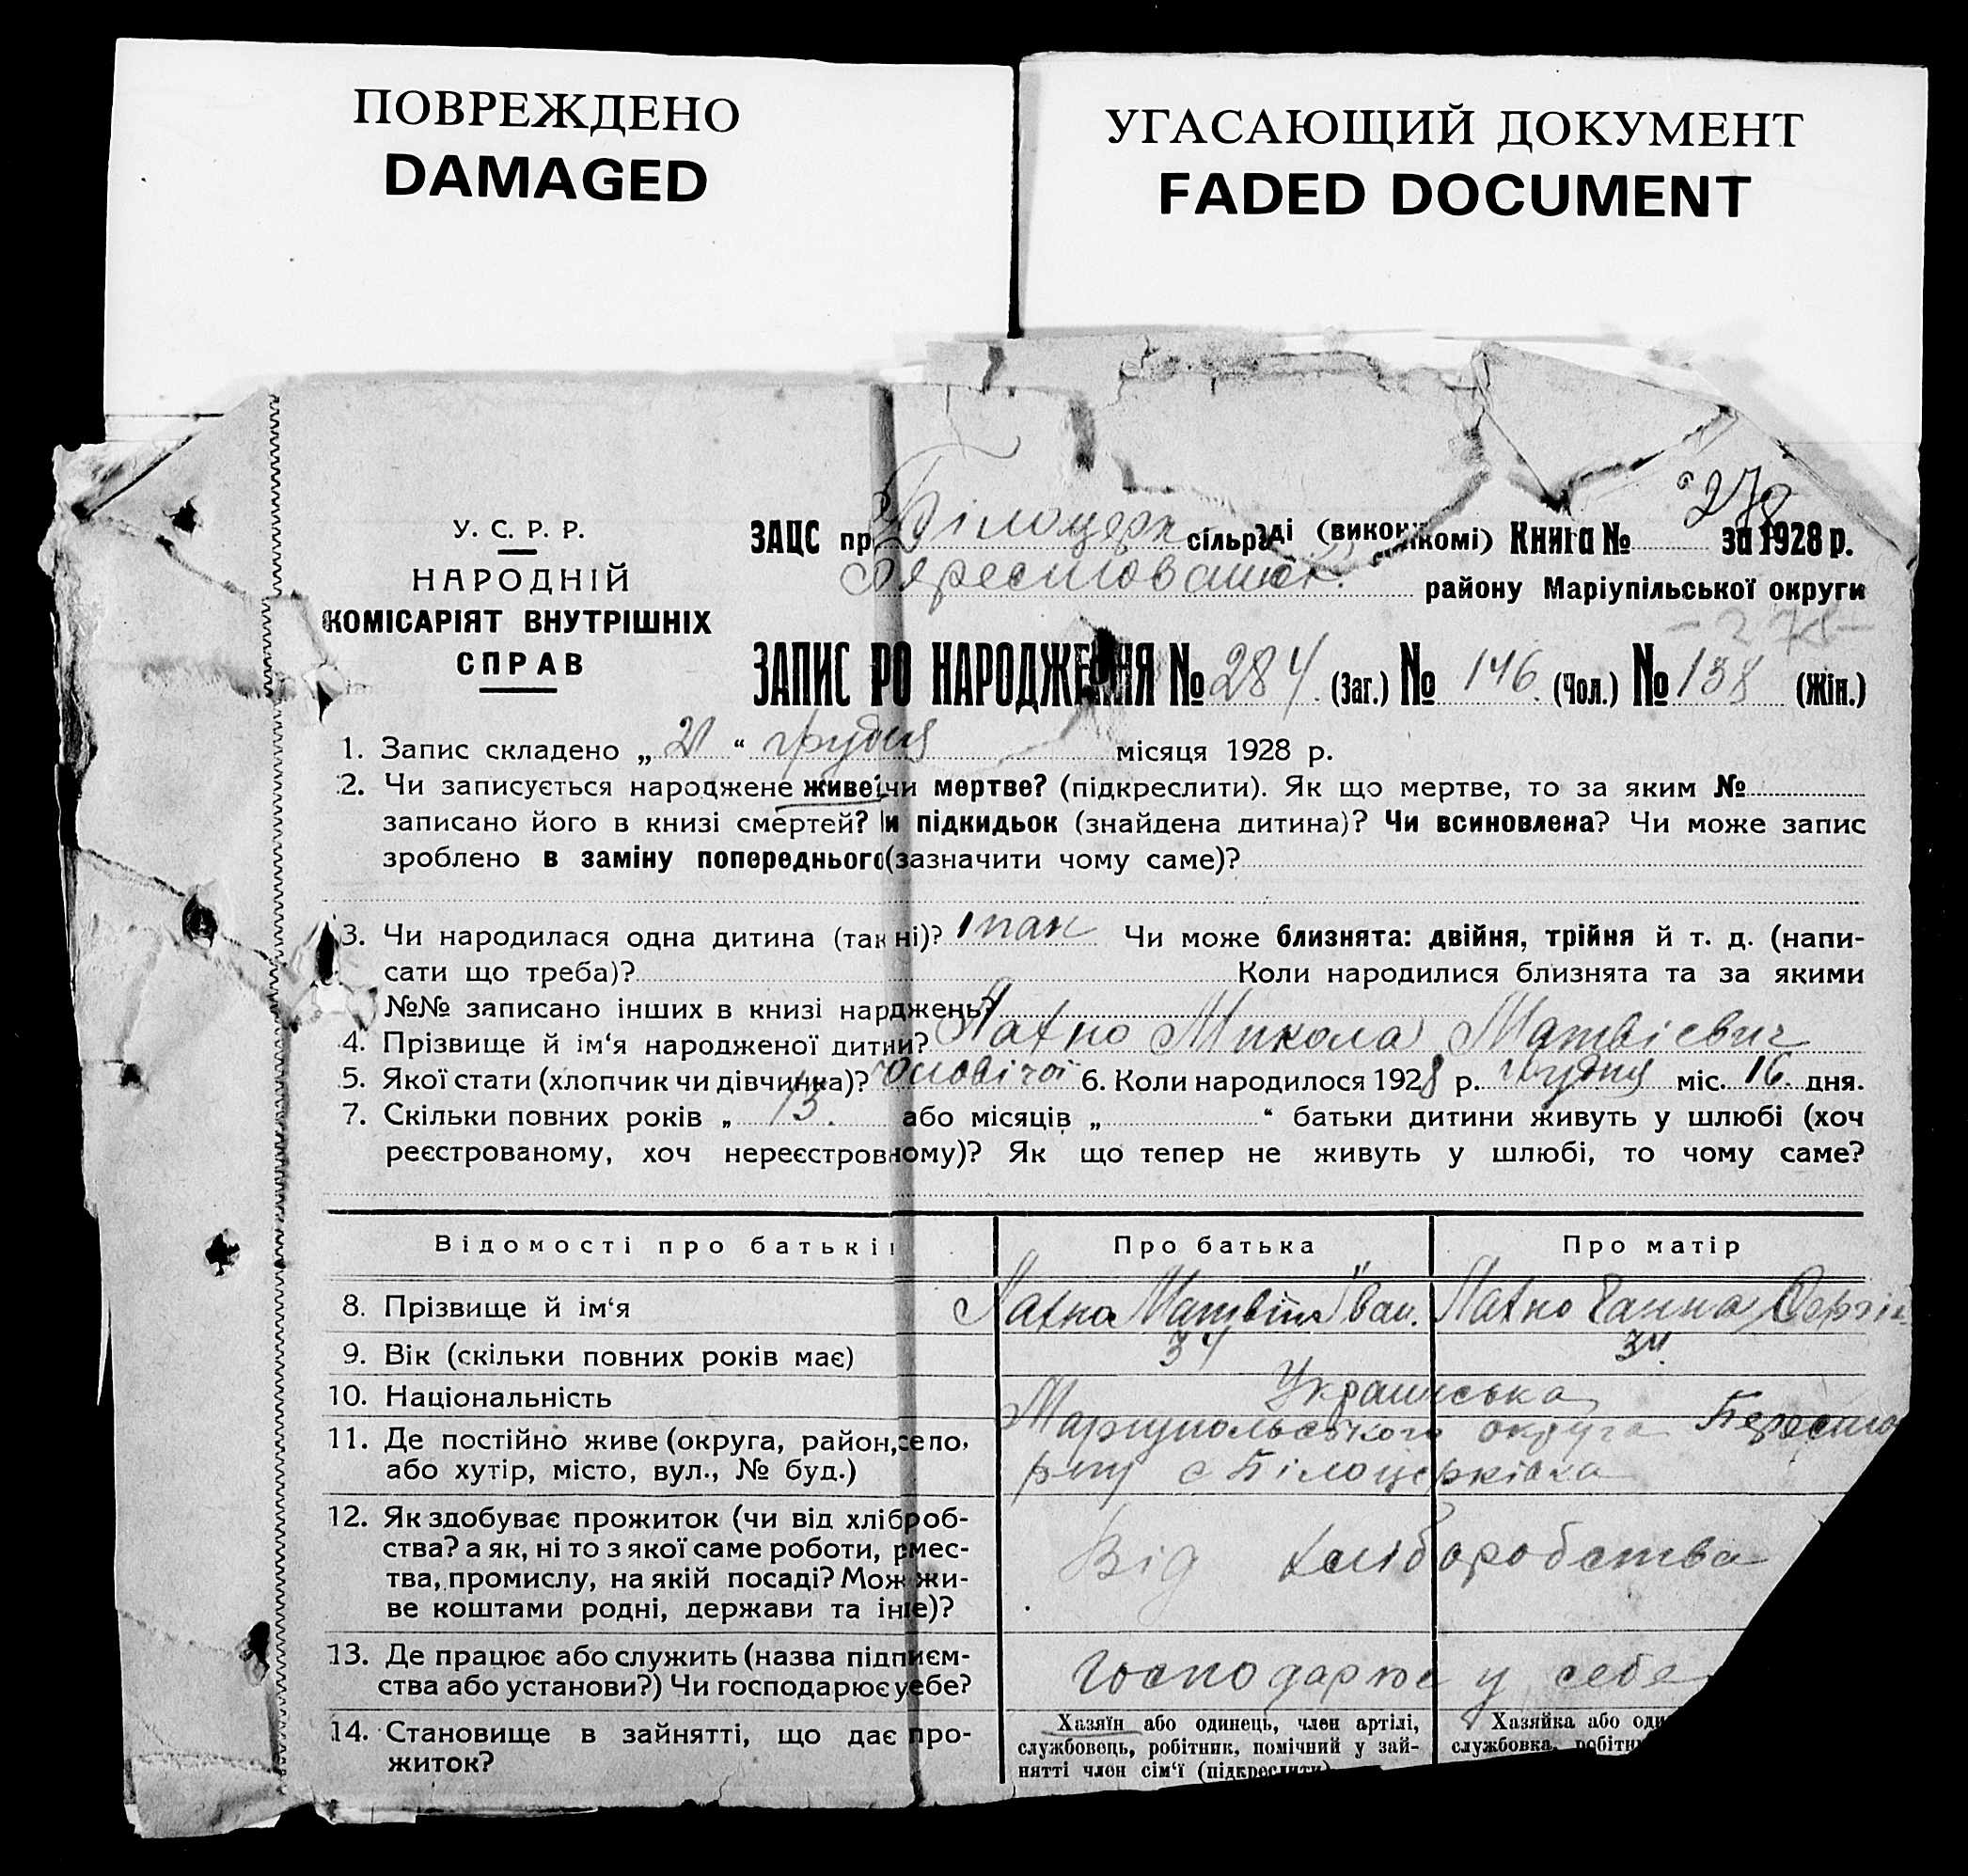 ПОВРЕЖДЕНО
DAMAGED
УГАСАЮЩИЙ ДОКУМЕНТ
FADED DOCUMENT
У. С. Р. Р.
НАРОДНІЙ
КОМІСАРІЯТ ВНУТРІШНІХ
СПРАВ
278
ЗАЦС пр Білоцерк сільра ді (викон комі) Книга № за 1928 р.
Берестованськ. району Маріупільської округи
- 278 -
ЗАПИС РО НАРОДЖЕННЯ № 284 (Заг.) № 146 (Чол.) № 138 (Жін.)
1. Запис складено „ 21 “ грудня місяця 1928 р.
2. Чи записується народжене живе чи мертве? (підкреслити). Як що мертве, то за яким №
записано його в книзі смертей? и підкидьок (знайдена дитина)? Чи всиновлена? Чи може запис
зроблено в заміну попереднього (зазначити чому саме)?
3. Чи народилася одна дитина (так ні)? 1 так Чи може близнята: двійня, трійня й т. д. (напи-
сати що треба)? Коли народилися близнята та за якими
№№ записано інших в книзі нар джень?
4. Прізвище й ім‘я народженої дитини? Лахно Микола Матвієвич
5. Якої стати (хлопчик чи дівчинка)? Чоловічої 6. Коли народилося 1928 р. грудня міс. 16. дня.
7. Скільки повних років „ 13. або місяців „ “ батьки дитини живуть у шлюбі (хоч
реєстрованому, хоч нереєстров ому)? Як що тепер не живуть у шлюбі, то чому саме?
Відомості про батькі Про батька Про матір
8. Прізвище й ім‘я Лахно Матвій Іван. Лахно Ганна Сергі
9. Вік (скільки повних років має) 34 34.
10. Національність Українська
11. Де постійно живе (округа, район, село, Маріупольського округа Бересто
або хутір, місто, вул., № буд.) р-ну с Білоцерківка
12. Як здобуває прожиток (чи від хліб роб-
ства? а як, ні то з якої саме роботи, р мес-
тва, промислу, на якій посаді? Мож жи-
ве коштами родні, держави та ін е)?
Від хліборобства
13. Де працює або служить (назва підприєм-
ства або установи?) Чи господарює у ебе?
Господарює у себе
14. Становище в зайнятті, що дає про-
житок?
Хазяїн або одинець, член артілі,
службовець, робітник, помічний у зай-
нятті член сім‘ї (підкреслити)
Хазяйка або оди
службовка, робітн